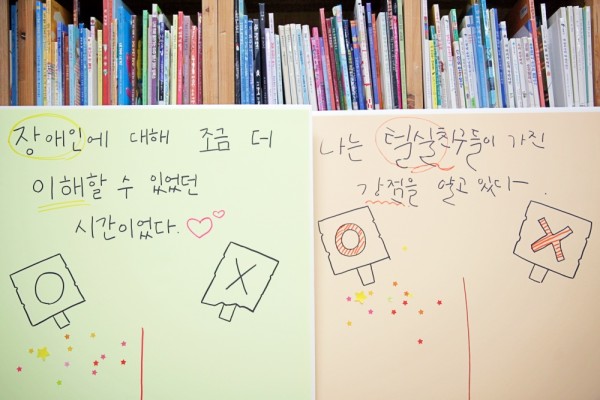 장애인에 대해 조금 더
이해할 수 있었던
시간이었다.
O
X
나는 털실친구들이 가진
강점을 알고 있다.
O
X